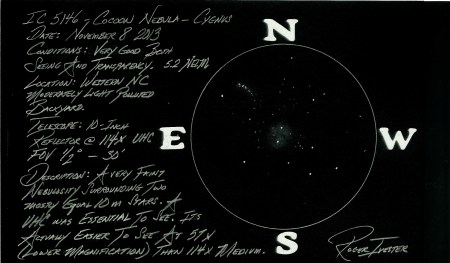 IC 5146, Cocoon Nebula - Cygnus
Date: November 8 2013
Conditions: Very Good Both
Seeing And Transparency. 5.2 NELM
Location: Western NC
Moderately Light Polluted
Backyard.
Telescope: 10-Inch
Reflector @ 114X UHC
FOV 1/2° - 30'
Description: A very Faint
Nebulosity Surrounding Two
mostly Equal 10 m Stars. A
UHC was Essential To See. Its
Actually Easier To See At 57X
(Lower Magnification) Than 114X Medium.
N
E
W
S
Roger Ivester